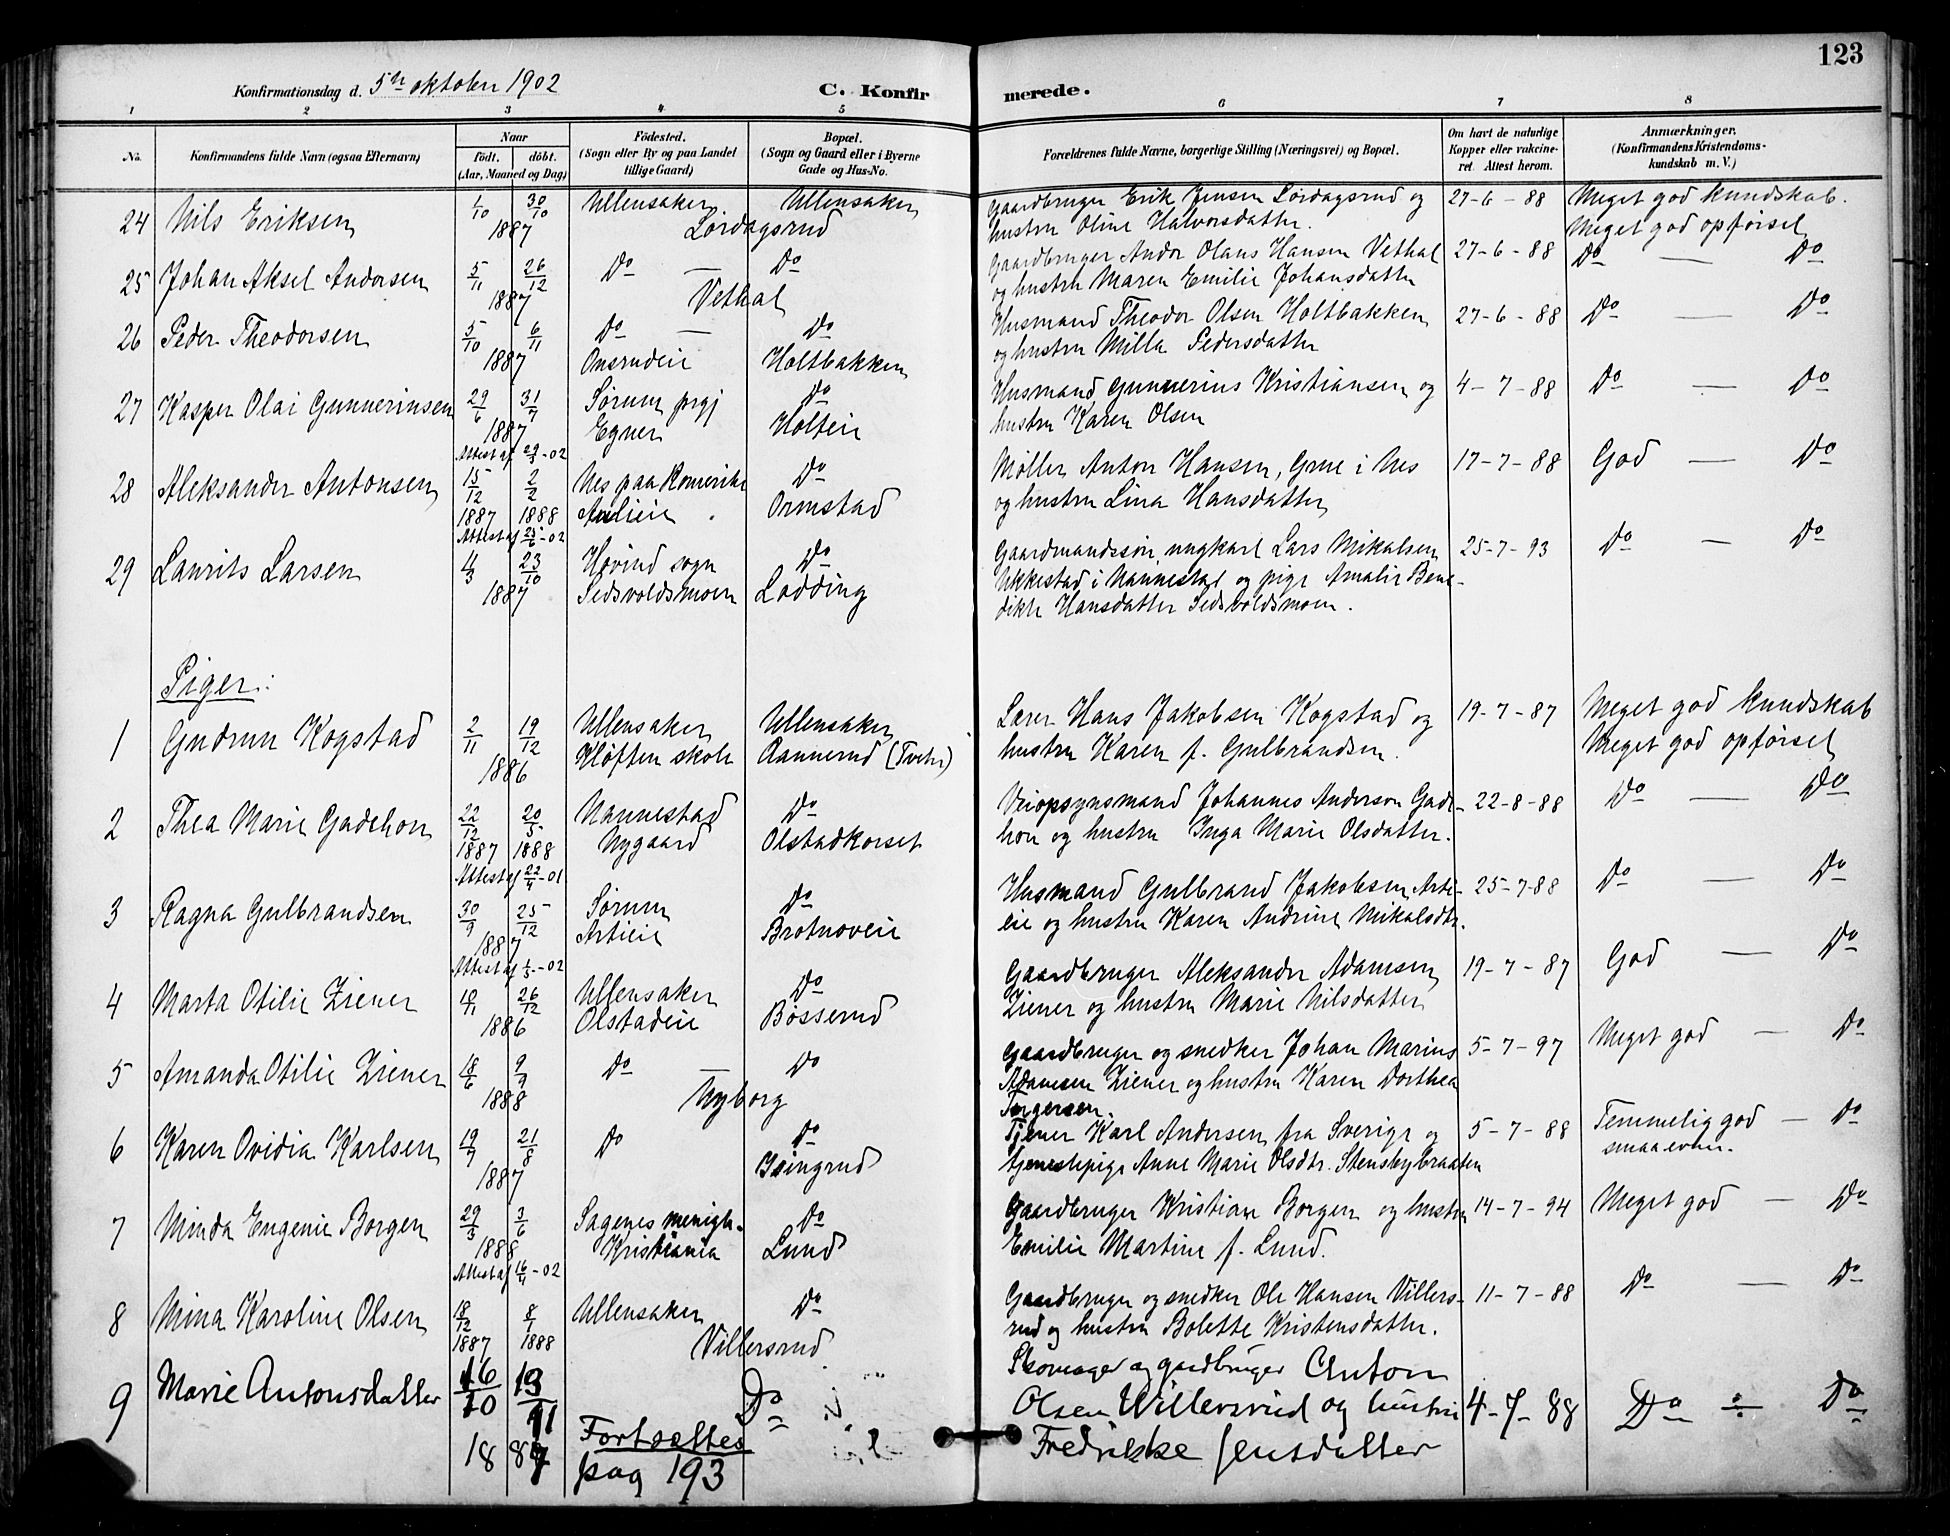 123
Konfirmationsdag d. 5te oktober 1902
C. Konfirmerede.
1 2 3 4 5 6 7 8
No.
Konfirmandens fulde Navn (ogsaa Efternavn)
Naar
født. døbt.
(Aar, Maaned og Dag)
Födested.
(Sogn eller By og paa Landet
tillige Gaard)
Bopæl.
(Sogn og Gaard eller i Byerne
Gade og Hus-No.
Forældrenes fulde Navne, borgerlige Stilling (Næringsvei) og Bopæl.
Om havt de naturlige
Kopper eller vakcine-
ret. Attest herom.
Anmærkninger.
(Konfirmandens Kristendoms-
kundskab m. V.)
24 Nils Eriksen 1/10 30/10 1887 Ullensaker Ullensaker Lørdagsrud
Gaardbruger Erik Jensen Lørdagsrud og
hustru Oline Halvorsdatter.
27-6-88 Meget god kundskab.
Meget god opførsel
25 Johan Aksel Andersen 5/11 26/12 1887 Do — Do Vethal
Gaardbruger Andor Olaus Hansen Vethal
og hustru Maren Emilie Johansdatter
27-6-88 Do — Do
26 Peder Theodorsen 5/10 6/11 1887 Do — Do
Onsrudeie Holtbakken
Husmand Theodor Olsen Holtbakken
og hustru Milla Pedersdatter
27-6-88 Do — Do
27 Kasper Olai Gunneriusen 29/6 31/7 1887 Sørum prgj Do
Egner Holteie
Attest af 29/3-02
Husmand Gunnerius Kristiansen og
hustru Karen Olsen
4-7-88 Do — Do
28 Aleksander Antonsen 15/12 1887 2/2 1888 Nes paa Romerike Do
Aulieie Ormstad
Attest af 25/6-02
Møller Anton Hansen, Grue i Nes
og hustru Lina Hansdatter
17-7-88 God — Do
29 Laurits Larsen 4/3 23/10 1887 Hovind sogn Do
Sedsvoldsmoen Lodding
Gaardmandssøn ungkarl Lars Mikalsen
Ukkestad i Nannestad og pige Amalie Bene-
dikte Hansdatter Sedsvoldsmoen.
25-7-93 Do — Do
Piger:
1 Gudrun Kogstad 2/11 19/12 1886 Ullensaker Ullensaker
Kløften skole Aannerud (Tveter)
Lærer Hans Jakobsen Kogstad og
hustru Karen f. Gulbrandsen.
19-7-87 Meget god kundskab
Meget god opførsel
2 Thea Marie Gadehon 22/12 1887 20/5 1888 Nannestad Do
Nygaard Olstadkorset
Attest af 22/4-01
Veiopsynsmand Johannes Anderson Gade-
hon og hustru Inga Marie Olsdatter.
22-8-88 Do — Do
3 Ragna Gulbrandsen 30/9 25/12 1887 Sørum Do
Artieie Brotnoveie
Attest af 1/5-02
Husmand Gulbrand Jakobsen Arti-
eie og hustru Karen Andrine Mikalsdtr.
25-7-88 Do — Do
4 Marta Otilie Ziener 18/11 26/12 1886 Ullensaker Do
Olstadeie Bøsserud
Gaardbruger Aleksander Adamsen
Ziener og hustru Marie Nilsdatter
19-7-87 God — Do
5 Amanda Otilie Ziener 18/6 9/9 1888 Do — Do
Nyborg
Gaardbruger og snedker Johan Marius
Adamsen Ziener og hustru Karen Dorthea
Torgersen.
5-7-97 Meget god — Do
6 Karen Ovidia Karlsen 19/7 21/8 1887 Do Do
Isingrud
Tjener Karl Andersen fra Sverige og
tjenestepige Anne Marie Olsdtr. Stensbybraaten
5-7-88 Temmelig god — Do
smaa evner.
7 Minda Eugenie Borgen 29/3 3/6 1888 Sagenes menigh. Do
Kristiania Lund
Attest af 16/4-02
Gaardbruger Kristian Borgen og hustru
Emilie Martine f. Lund.
14-7-94 Meget god — Do
8 Mina Karoline Olsen 18/12 1887 8/1 1888 Ullensaker Do
Villersrud
Gaardbruger og snedker Ole Hansen Villers-
rud og hustru Bolette Kristensdatter.
11-7-88 Do — Do
9 Marie Antonsdatter 16/10 13/11 1887 Do
Skomager og gardbruger Anton
Olsen Willersrud og hustru
Fredrikke Jensdatter
4-7-88 Do Do
Fortsættes
pag 193